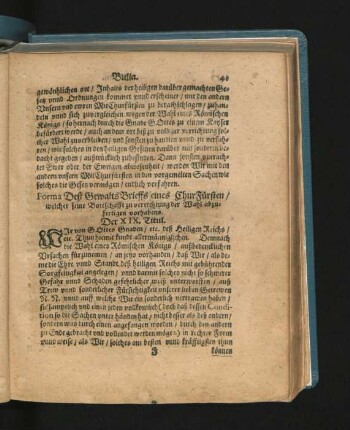 Bulla.
gewöhnlichen ort / Inhalts der heiligen darüber gemachten Ge-
setz vnnd Ordnungen kommet vnnd erscheinet / mit den andern
Vnsern vnd ewren MitChurfürsten zu berathschlagen / zuhan-
deln vnnd sich zuvergleichen wegen der Wahl eines Römischen
Königs / so hernach durch die Gnade GOttes zu einem Keyser
befördert werde / auch an dem ort biß zu volliger verrichtung sol-
cher Wahl zuverbleiben / vnd sonsten zu handlen vnnd zu verfah-
ren / wie solches in den heiligen Gesetzen darüber mit sonder
dacht gegeben / außtrücklich zubefinden. Dann sonsten
ter State oder der Ewrigen abwesenheit / werden Wir mit den
andern vnsern MitChurfürsten in den vorgemelten Sachen wie
solches die Gesetz vermögen / entlich verfahren.
Forma Deß Gewalts Brieffs eines ChurFürsten /
welcher seine Bottschafft zu verrichtung der Wahl abzu-
fertigen vorhabens.
Der XIX. Titul.
WIr von GOttes Gnaden / etc. deß Heiligen Reichs /
etc. Thun hiemit kundt allermänniglichen. Demnach
die Wahl eines Römischen Königs / auß
Vrsachen fürzunemen / an jetzo vorhanden / daß Wir / als de-
me die Ehre vnnd Standt deß heiligen Reichs mit gebührender
Sorgfeltigkeit angelegen / vnnd damit solches nicht so schwerer
Gefahr vnnd Schaden gefehrlicher weiß vnterworffen / auß
Trew vnnd sonderlicher Fürsichtigkeit vnserer lieben Getrewen
N. N. vnnd auff welche Wir ein sonderlich vertrawen haben /
sie sämptlich vnd einen jeden vollkommlich (doch daß dessen Condi-
tion so die Sachen vnter handen hat / nicht besser als deß andern /
sondern was durch einen angefangen worden / durch den andern
zu Ende gebracht vnd vollendet werden mögen) in rechter Form
vnnd weise / als Wir / solches am besten vnnd kräfftigsten thun
können